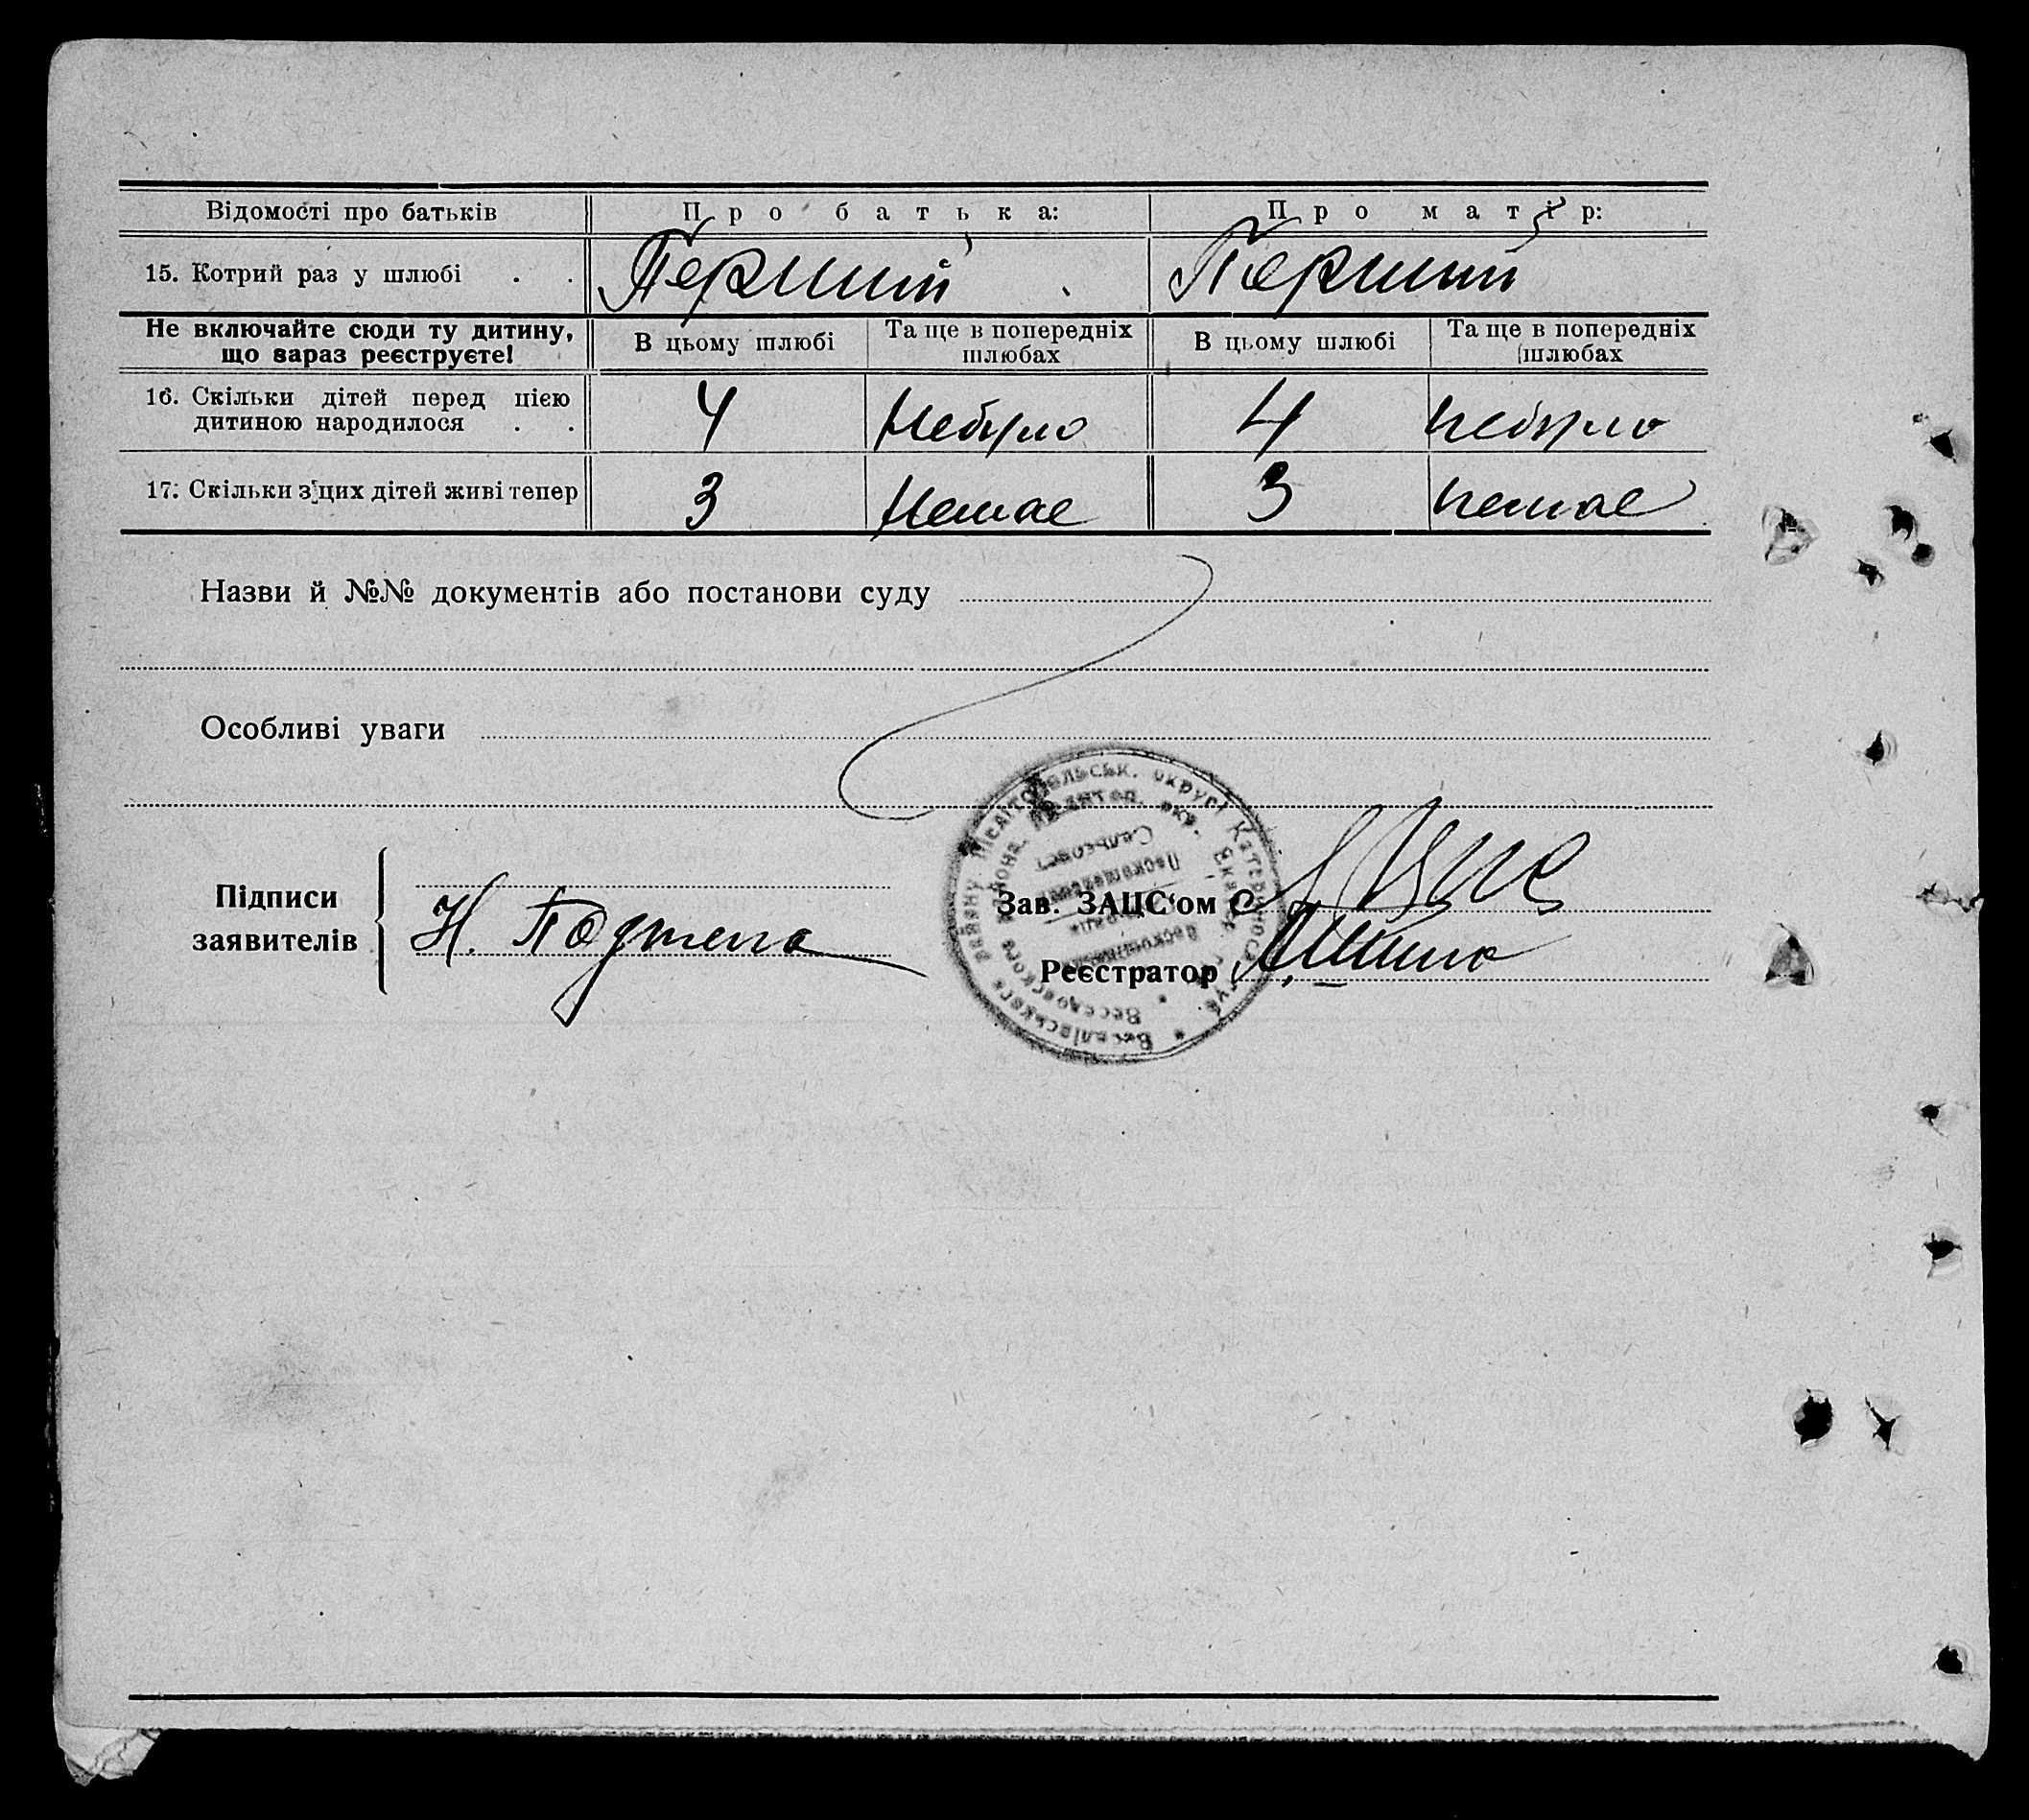 Відомості про батьків Про батька: Про матір:
15. Котрий раз у шлюбі . . Перший Перший
Не включайте сюди ту дитину, що вараз реєструєте! В цьому шлюбі Та ще в попередніх шлюбах В цьому шлюбі Та ще в попередніх шлюбах
16. Скільки дітей перед цією дитиною народилося . . 4 небуло 4 небуло
17. Скільки з цих дітей живі тепер 3 немає 3 немає
Назви й №№ документів або постанови суду
Особливі уваги
Веселівського району Мелітопельськ. округі Катер
Сельсовет
Підписи заявителів
Н.
Зав. ЗАЦС'ом
Реєстратор